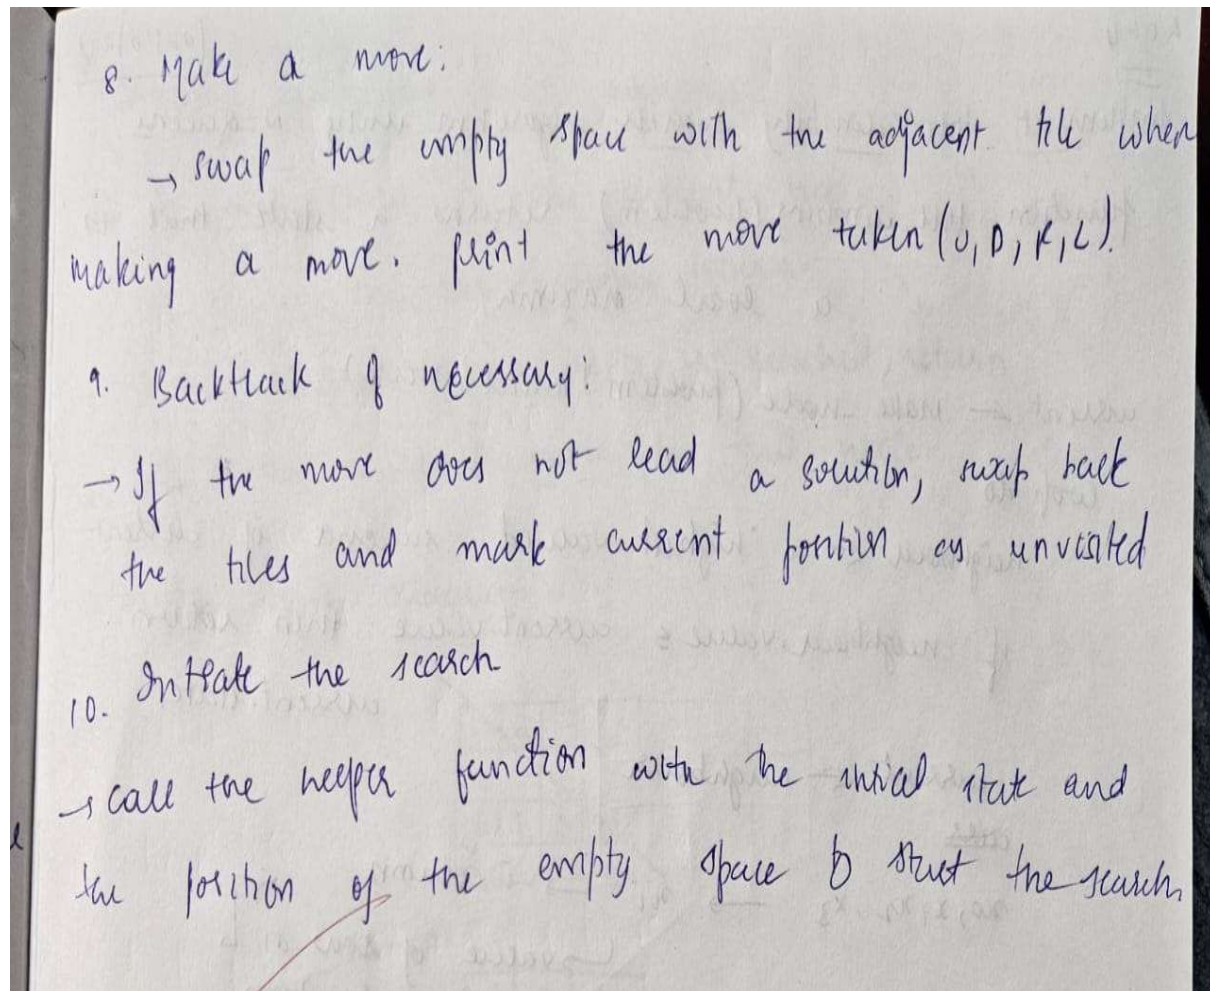 8. Make a move:
→ swap the empty space with the adjacent tile when
making a move. print the move taken (U, D, R, L).
9. Backtrack if necessary:
→ If the move does not lead a solution, swap back
the tiles and mark current position as unvisited
10. Initiate the search
→ call the helper function with the initial state and
the position of the empty space to start the search.